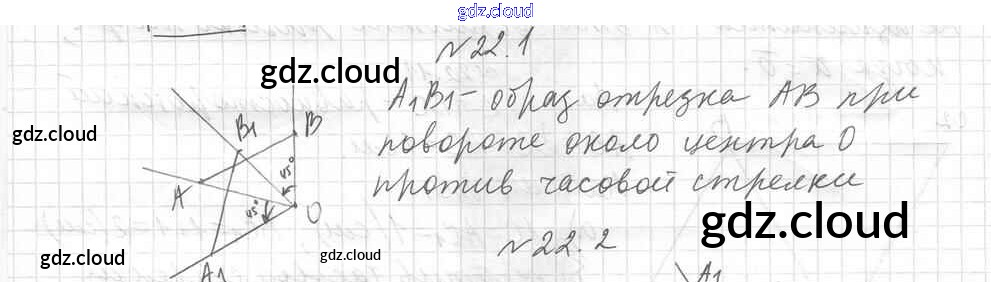 gdz.cloud
№ 22.1
gdz.cloud
A₁B₁ - образ отрезка AB при
gdz.cloud
повороте около центра O
против часовой стрелки
B₁
B
45°
A
45°
O
A₁
gdz.cloud
gdz.cloud
gdz.cloud
№ 22.2
A₁